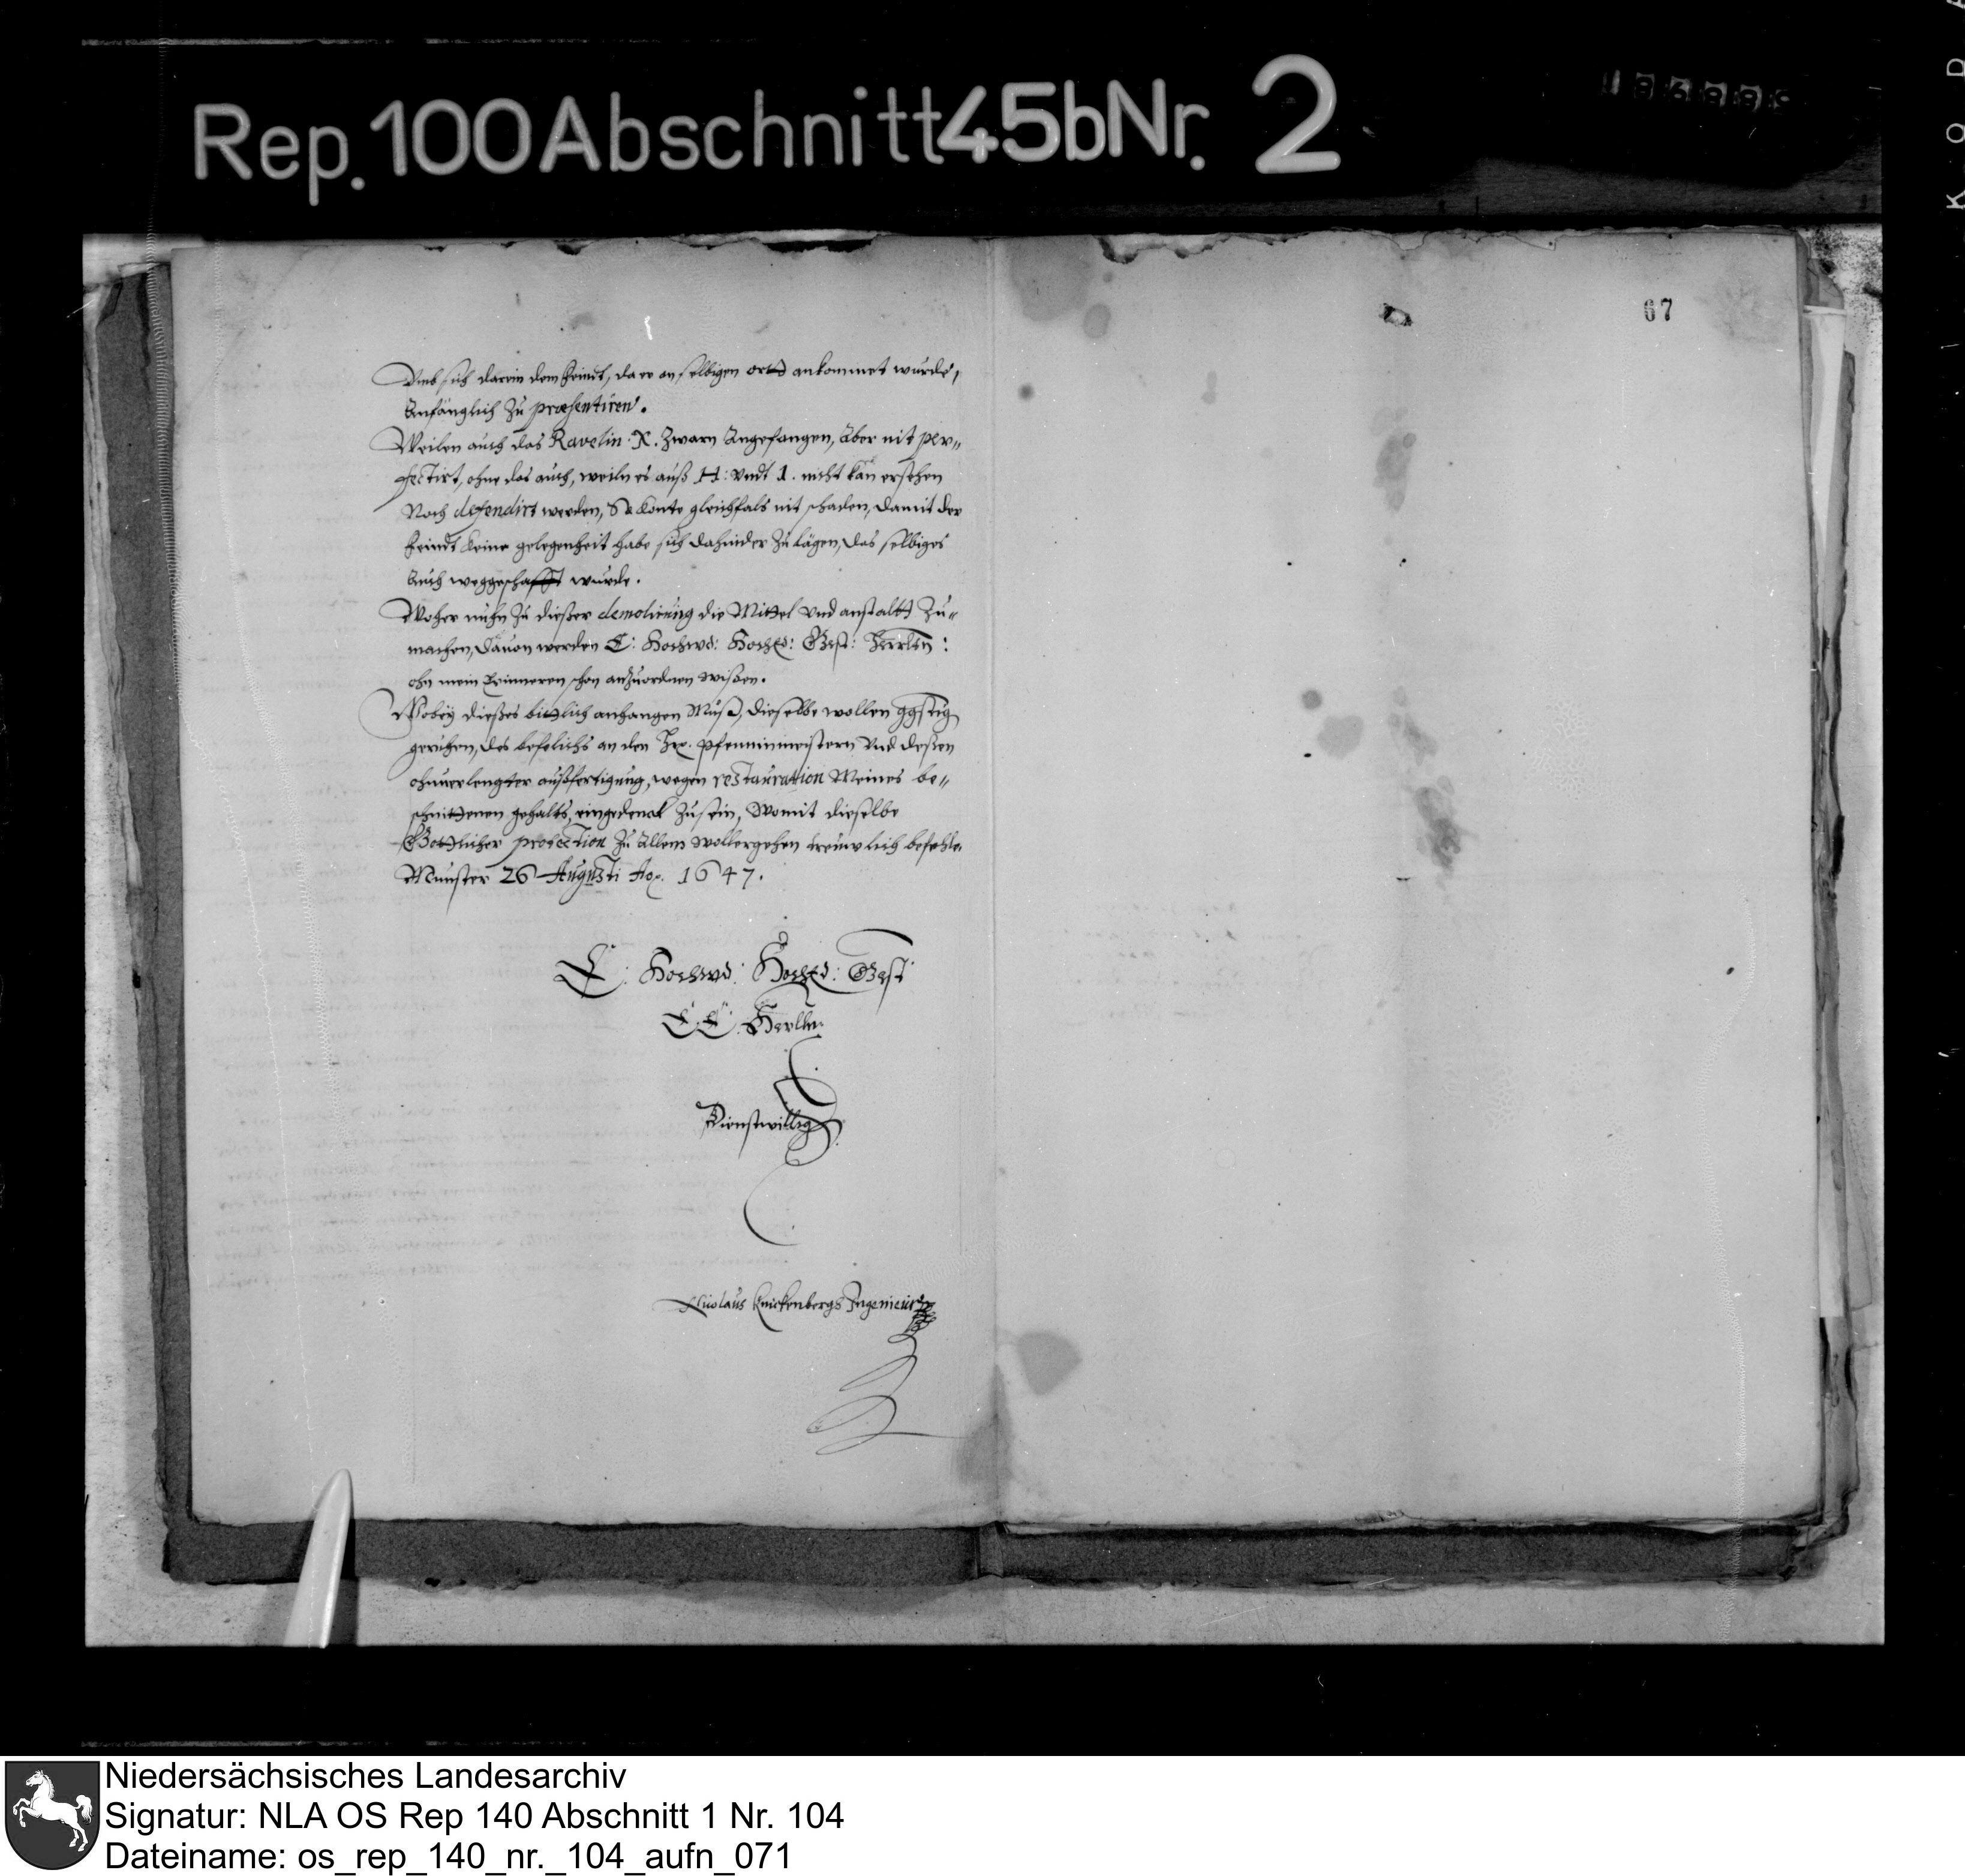 Rep. 100 Abschnitt 45b Nr. 2
186889
KODA
67
Umb sich darein dem feindt, da er an selbigen orth ankommet wurde,
Anfänglich zu præsentiren.
Weilen auch das Ravelin X. zwarn Angefangen, Aber nit per„
fectirt, ohne das auch, weiln es auß H: undt I. nicht kan ersehen
Noch defendirt werden, So konte gleichfals nit schaden, damit der
feindt keine gelegenheit habe sich dahinder zu lägen, das selbiges
Auch weggeschafft wurde.
Woher nuhn zu dießer demolirung die Mittel und anstaltt zu„
machen, davon werden E: Hochwd: Hoched: Gest: Herrltn:
ohn mein Erinneren schon anzuordnen wißen.
Wobey dießes bittlich anhangen Muß, dieselbe wollen ggstig
geruhen, des befelichs an den Hrn. Pfenninmeistern und deßen
ohnverlengter außfertigung, wegen restauration Meines be„
schnittenen gehalts, eingedenck zu sein, Womit dieselbe
Gottlicher protection zu Allem Wollergehen trewlich befehle.
Munster 26 Augusti Ao. 1647.
E: Hochwd: Hoched: Gest:
E. E. Herlln:
Dienstwillig
Nicolaus Knickenbergs Ingenieur
Niedersächsisches Landesarchiv
Signatur: NLA OS Rep 140 Abschnitt 1 Nr. 104
Dateiname: os_rep_140_nr._104_aufn_071